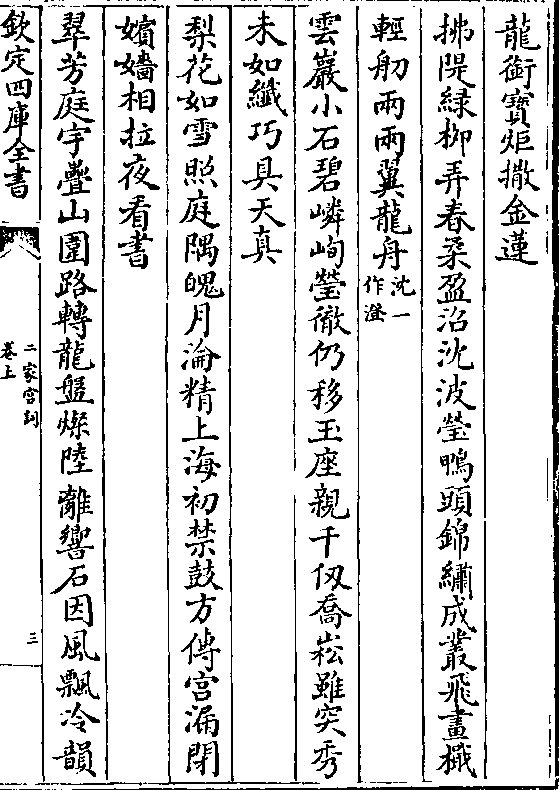 龍銜寶炬撒金蓮
拂隄綠柳弄春柔盈沼沈波瑩鴨頭錦繡成叢飛畫檝
輕舠兩兩翼龍舟沈一作澄
雲巖小石碧嶙峋瑩徹仍移玉座親千仭喬崧雖突秀
未如纖巧具天真
梨花如雪照庭隅魄月淪精上海初禁鼓方傳宫漏閉
嬪嬙相拉夜看書
翠芳庭宇疊山圍路轉龍盤燦陸離響石因風飄冷韻
欽定四庫全書
二家宫詞
卷上
三